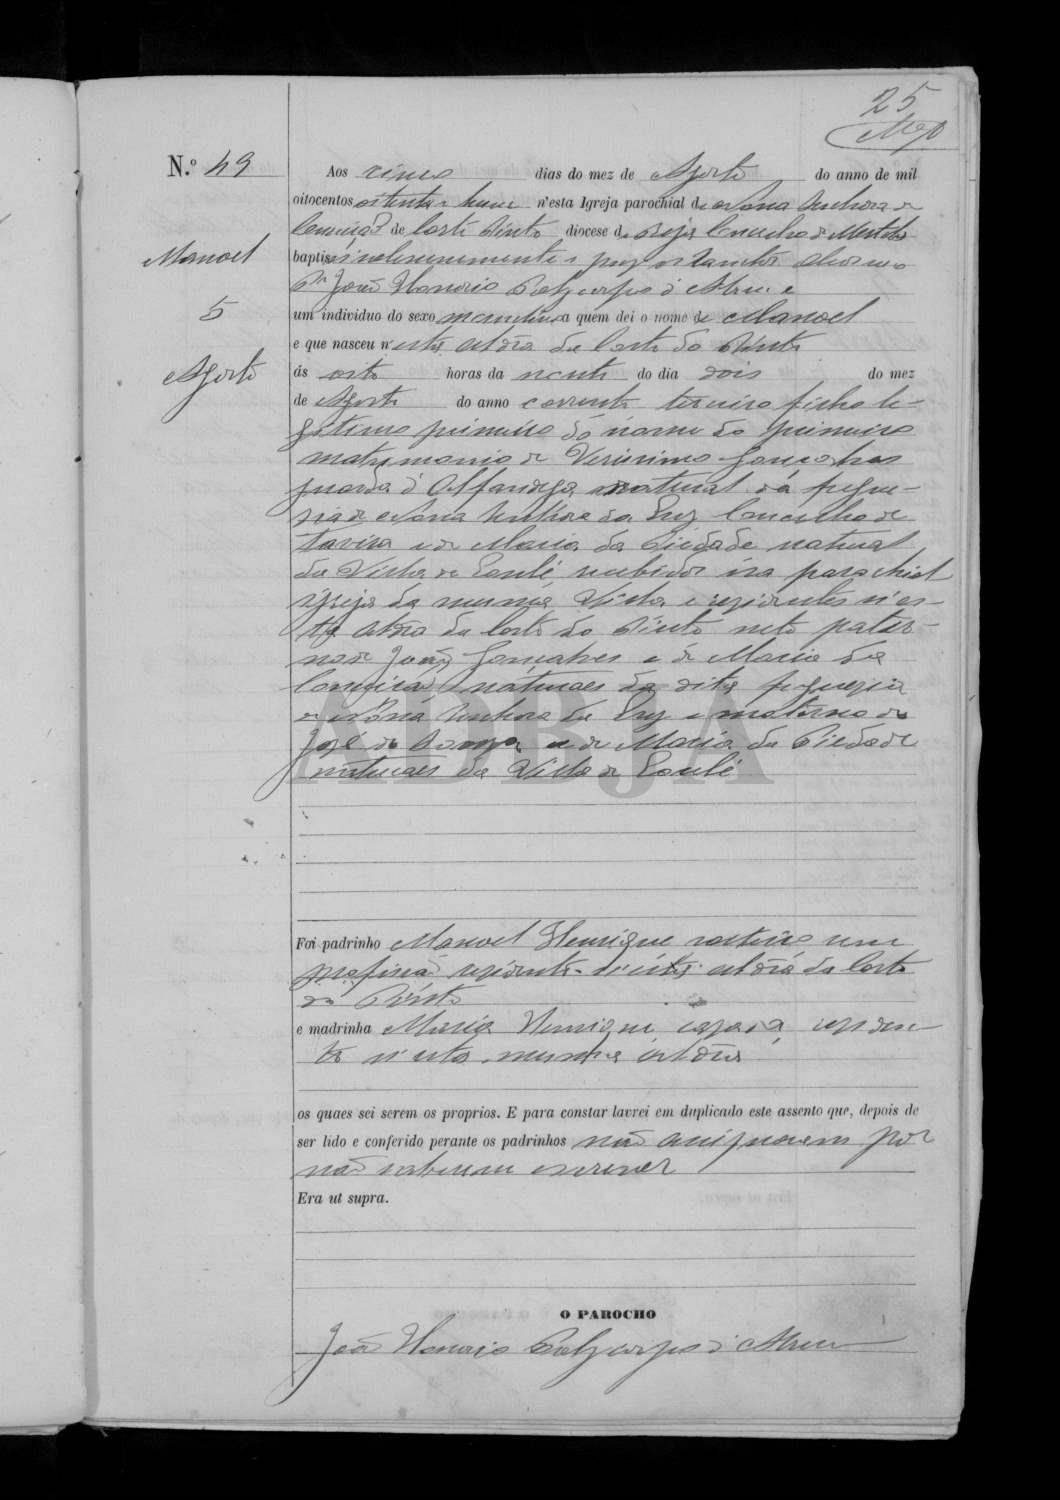 25
N.º 49
Aos cinco dias do mez de Agosto do anno de mil
oitocentos oitenta e hum n'esta Igreja parochial de Nossa Senhora da
Conceição de Corte Pinto diocese de Beja Concelho de Mertola
Manoel
baptisei solemnemente e puz os Santos oleos
João Honorio Polycarpo d'Abreu
5
um individuo do sexo masculino a quem dei o nome de Manoel
e que nasceu n'esta aldêa da Corte do Pinto
Agosto
ás oito horas da noute do dia dois do mez
de Agosto do anno corrente terceiro filho le-
gitimo primeiro do nome do primeiro
matrimonio de Verissimo Gonçalves
guarda d'Alfandega natural da fregue-
sia de Nossa Senhora da Luz Concelho de
Tavira e de Maria da Piedade natural
da Villa de Loulé recebidos na parochial
Igreja da mesma Villa e residentes n'es-
ta aldêa da Corte do Pinto neto pater-
no de João Gonçalves e de Maria da
Conceição naturaes da dita freguezia
de Nossa Senhora da Luz e materno de
José de Souza e de Maria da Piedade
naturaes da Villa de Loulé
ADBJA
Foi padrinho Manoel Henrique solteiro sem
profissão residente n'esta aldêa da Corte
do Pinto
e madrinha Maria Henrique casada residen-
te n'esta mesma aldêa
os quaes sei serem os proprios. E para constar lavrei em duplicado este assento que, depois de
ser lido e conferido perante os padrinhos não assignaram por
não saberem escrever
Era ut supra.
O PAROCHO
João Honorio Polycarpo d'Abreu